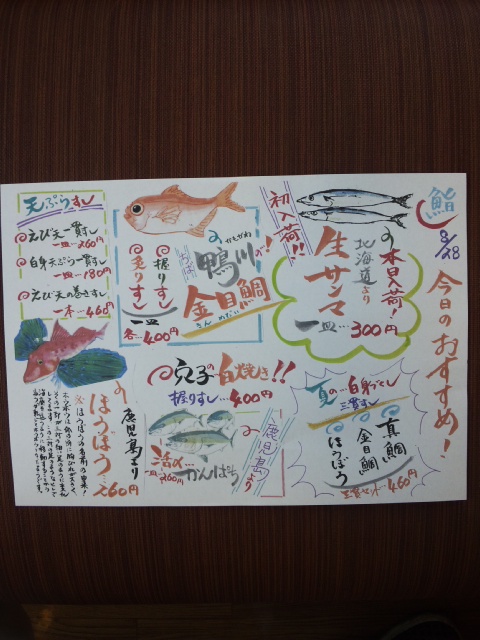 鮨
8/28
今日のおすすめ!
初入荷!!
本日入荷!
北海道より
生サンマ
一皿…300円
かもがわ
鴨川
が!
金目鯛
きんめだい
握りすし
炙りすし
一皿
各…400円
天ぷらすし
えび天一貫すし
一皿…260円
白身天ぷら一貫すし
一皿…180円
えび天の巻きすし
一本…460円
穴子の白焼き!!
握りすし…400円
夏の…白身づくし
三貫すし
真鯛
金目鯛
ほうぼう
三貫セット…460円
鹿児島より
かんぱち
鹿児島より
ほうぼう…260円
ほうぼうの名前の由来!